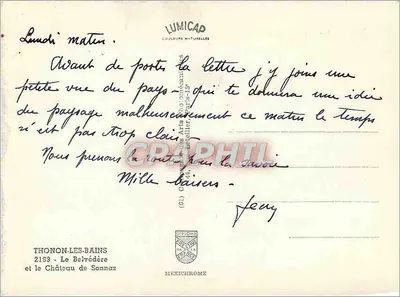 LUMICAP
COULEURS NATURELLES
Lundi matin.
Avant de poster la lettre j'y joins une
petite vue du pays - qui te donnera une idée
du paysage malheureusement ce matin le temps
n'est pas trop clair -
Nous prenons la route pour la Savoie
Mille baisers -
THONON-LES-BAINS
2159 - Le Belvédère
et le Château de Sonnaz
MEXICHROME
CARTAGRAPHIL